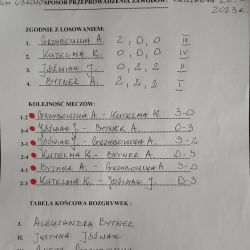 SPOSÓB PRZEPROWADZENIA ZAWODÓW:
2023 r.
ZGODNIE Z LOSOWANIEM:
1. GRZYBOWSKA A. 2, 0, 0 III
2. KUTELMA K. 0, 0, 0 IV
3. JÓŹWIAK J. 0, 2, 2 II
4. BYTNER A. 2, 2, 2 I
KOLEJNOŚĆ MECZÓW:
1-2 GRZYBOWSKA A. - KUTELMA K. 3-0
JÓŹWIAK J. - BYTNER A. 0-3
JÓŹWIAK J. - GRZYBOWSKA A. 3-2
2-4 KUTELMA K. - BYTNER A. 0-3
4-1 BYTNER A. - GRZYBOWSKA A. 3-0
2-3 KUTELMA K. - JÓŹWIAK J. 0-3
TABELA KOŃCOWA ROZGRYWEK:
I. ALEKSANDRA BYTNER
II. JUSTYNA JÓŹWIAK